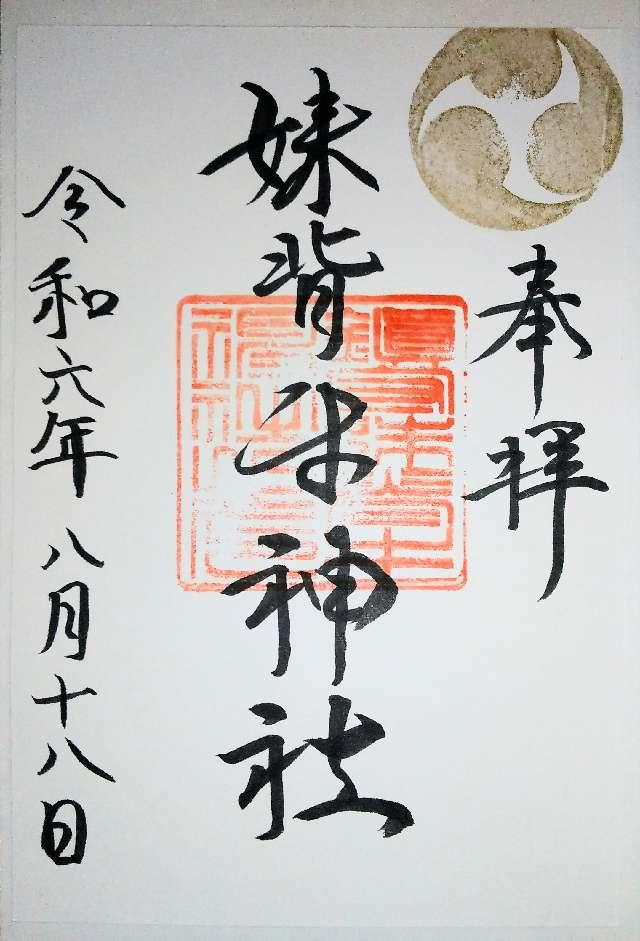 奉拝
妹背牛神社
令和六年八月十八日